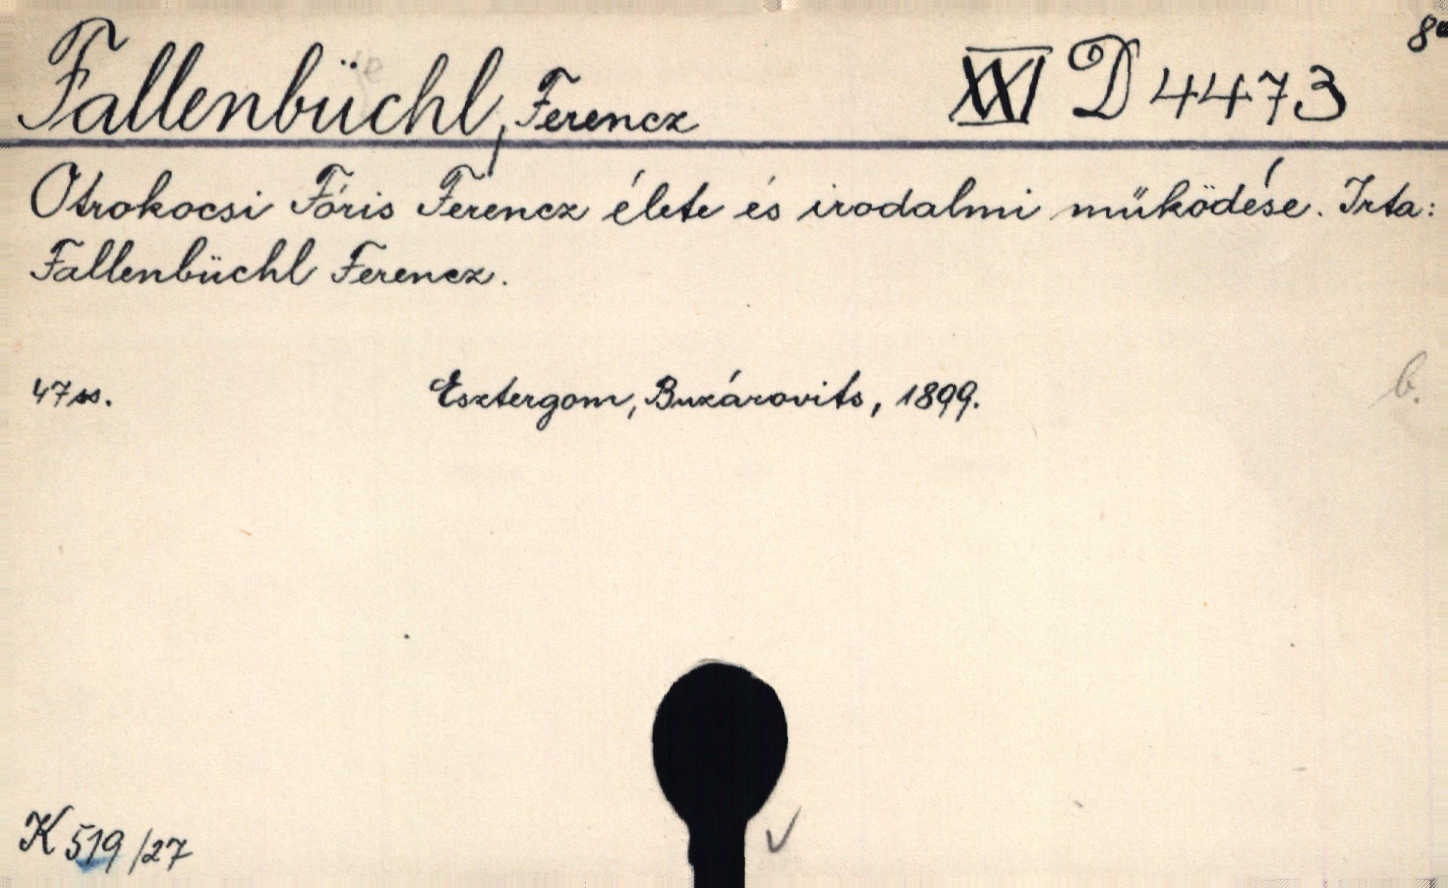 Fallenbüchl, Ferencz XXI D 4473
Otrokocsi Fóris Ferencz élete és irodalmi müködése. Irta:
Fallenbüchl Ferencz.
47 ss. Esztergom, Buzárovits, 1899. b.
K 519/27